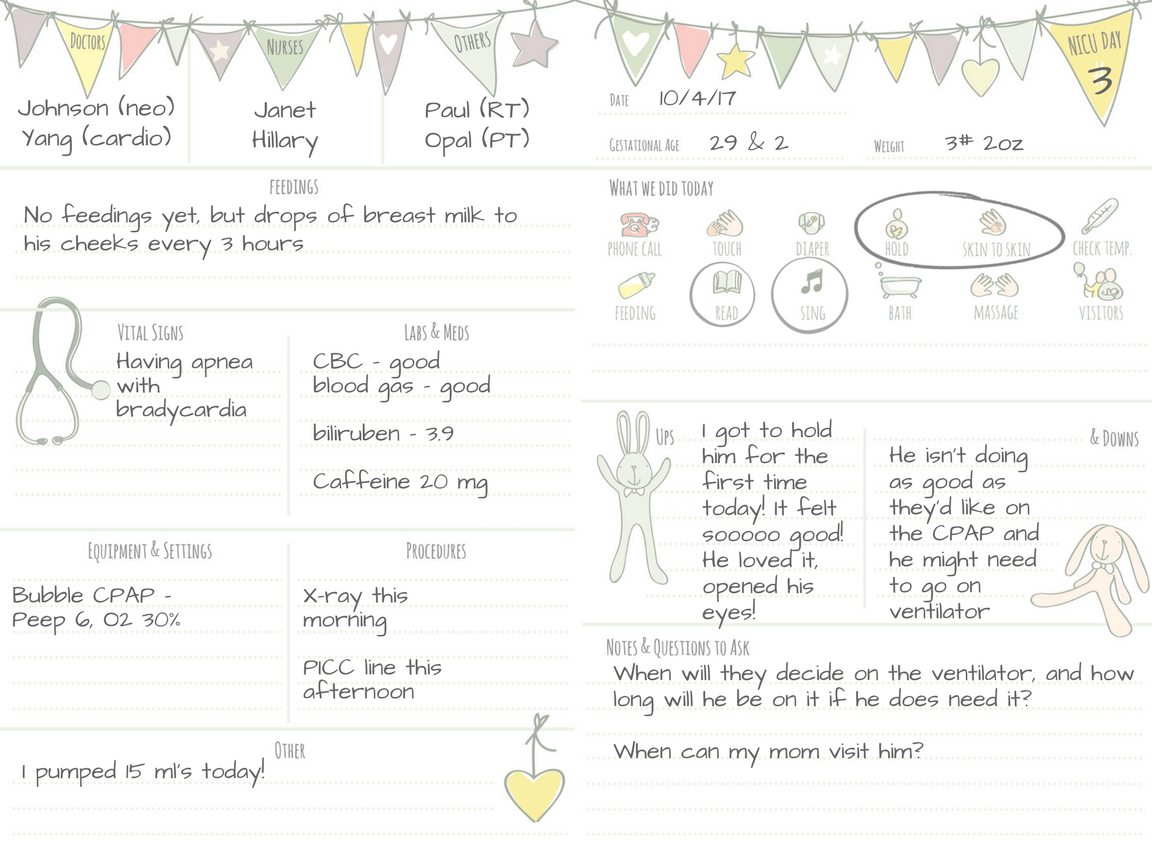 Doctors
Johnson (neo)
Yang (cardio)
Nurses
Janet
Hillary
Others
Paul (RT)
Opal (PT)
Feedings
No feedings yet, but drops of breast milk to
his cheeks every 3 hours
Vital Signs
Having apnea
with
bradycardia
Labs & Meds
CBC - good
blood gas - good
biliruben - 3.9
Caffeine 20 mg
Equipment & Settings
Bubble CPAP -
Peep 6, O2 30%
Procedures
X-ray this
morning
PICC line this
afternoon
Other
I pumped 15 ml's today!
NICU Day
3
Date 10/4/17
Gestational Age 29 & 2
Weight 3# 2oz
What we did today
Phone Call
Touch
Diaper
Hold
Skin to Skin
Check Temp.
Feeding
Read
Sing
Bath
Massage
Visitors
Ups
I got to hold
him for the
first time
today! It felt
sooooo good!
He loved it,
opened his
eyes!
& Downs
He isn't doing
as good as
they'd like on
the CPAP and
he might need
to go on
ventilator
Notes & Questions to Ask
When will they decide on the ventilator, and how
long will he be on it if he does need it?
When can my mom visit him?